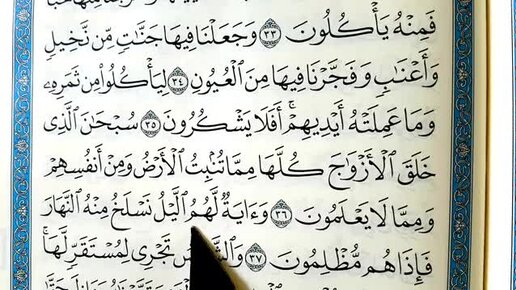 فَمِنْهُ يَأْكُلُونَ ٣٣ وَجَعَلْنَا فِيهَا جَنَّٰتٍ مِّن نَّخِيلٍ
وَأَعْنَٰبٍ وَفَجَّرْنَا فِيهَا مِنَ ٱلْعُيُونِ ٣٤ لِيَأْكُلُوا۟ مِن ثَمَرِهِۦ
وَمَا عَمِلَتْهُ أَيْدِيهِمْ ۖ أَفَلَا يَشْكُرُونَ ٣٥ سُبْحَٰنَ ٱلَّذِى
خَلَقَ ٱلْأَزْوَٰجَ كُلَّهَا مِمَّا تُنۢبِتُ ٱلْأَرْضُ وَمِنْ أَنفُسِهِمْ
وَمِمَّا لَا يَعْلَمُونَ ٣٦ وَءَايَةٌ لَّهُمُ ٱلَّيْلُ نَسْلَخُ مِنْهُ ٱلنَّهَارَ
فَإِذَا هُم مُّظْلِمُونَ ٣٧ تَجْرِى لِمُسْتَقَرٍّ لَّهَا ۚ